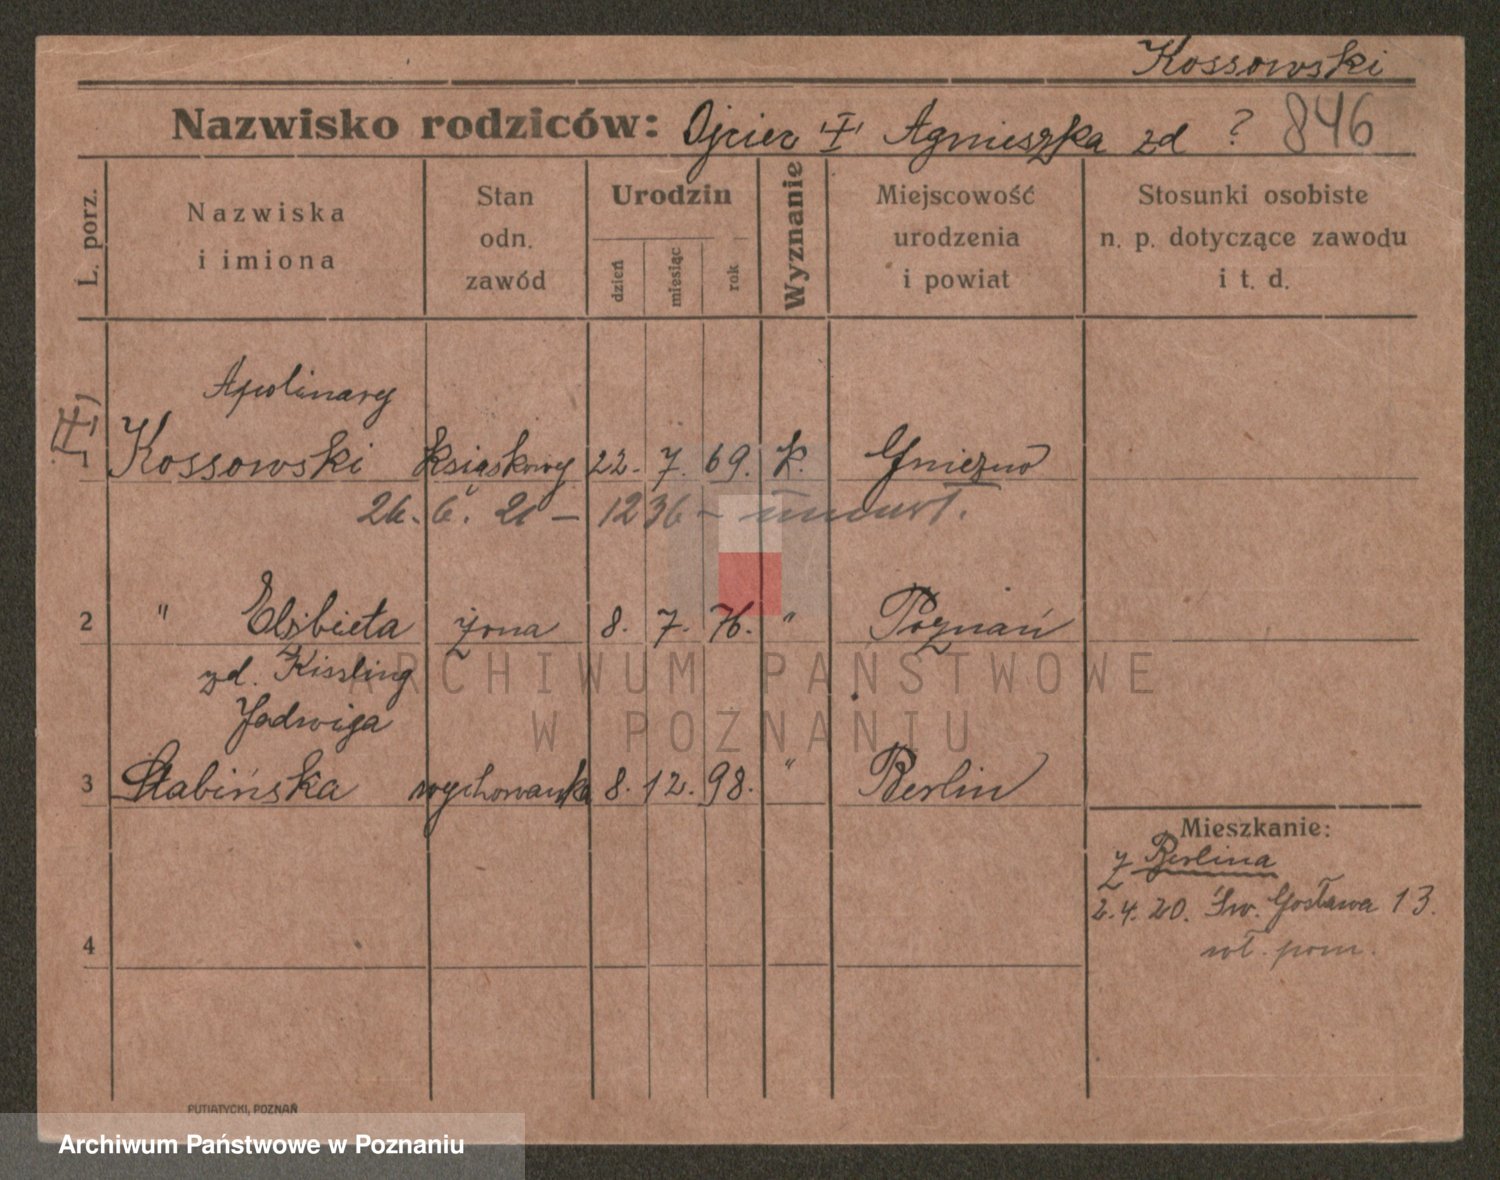 Kossowski
Nazwisko rodziców: Ojciec "I" Agnieszka zd ? 846
L. porz.
Nazwiska i imiona
Stan odn. zawód
Urodzin
dzień
miesiąc
rok
Wyznanie
Miejscowość urodzenia i powiat
Stosunki osobiste n. p. dotyczące zawodu i t. d.
Apolinary
1 Kossowski książkowy 22. 7. 69. k. Gniezno
26. 6. 21 – 1236 –
2 " Elżbieta żona 8. 7. 76. " Poznań
zd. Kissling
Jadwiga
3 Stabińska wychowanka 8. 12. 98. " Berlin
Mieszkanie:
z Berlina
2.4.20. Św. Gosława 13.
wł. pom.
4
PUTIATYCKI, POZNAŃ
ARCHIWUM PAŃSTWOWE
W POZNANIU
Archiwum Państwowe w Poznaniu